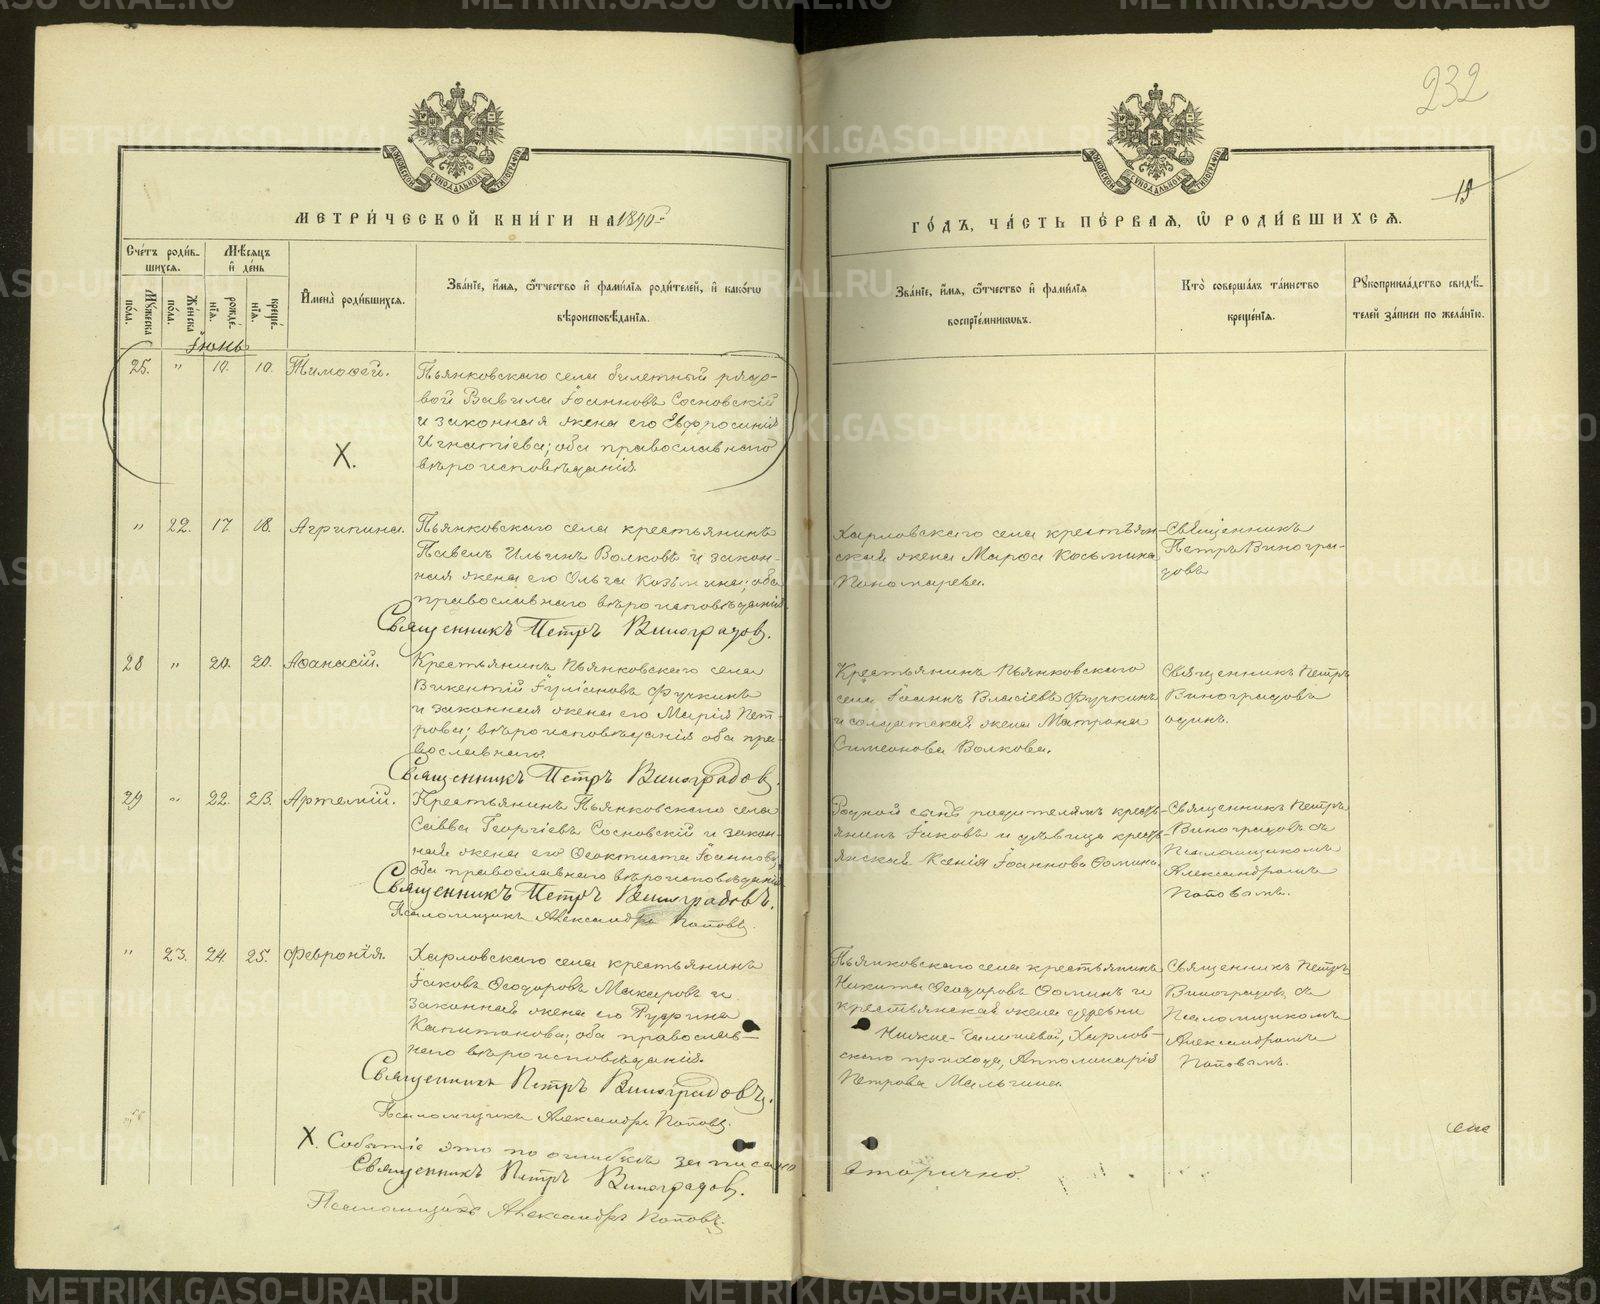 METRIKI.GASO-URAL.RU
232
19
МЕТРИ́ЧЕСКОЙ КНИ́ГИ НА 1890
ГО́ДЪ, ЧА́СТЬ ПЕ́РВАЯ, Ѡ РОДИ́ВШИХСЯ.
Сче́тъ роди́в-
шихся.
Мѣ́сяцъ
и҆ де́нь
Му́жеска
по́ла.
Же́нска
по́ла.
рожде́-
нія.
креще́-
нія.
И҆мена̀ роди́вшихся.
Зва́ніе, и҆́мя, ѻ҆́тчество и҆ фами́лія роди́телей, и҆ како́гѡ
вѣроисповѣ́данія.
Зва́ніе, и҆́мя, ѻ҆́тчество и҆ фами́лія
воспріе́мниковъ.
Кто̀ соверша́лъ та́инство
креще́нія.
Рукоприкла́дство свидѣ́-
телей за́писи по жела́нію.
Іюнь
25. " 19. 19. Тимоѳей.
Пьянковскаго села билетный рядо-
вой Вавила Іоанновъ Сосновскій
и законная жена его Евфросинія
Игнатіева; оба православнаго
вѣроисповѣданія.
X.
" 22. 17 18. Агрипина.
Пьянковскаго села крестьянинъ
Павелъ Ильинъ Волковъ и закон-
ная жена его Ольга Козьмина; оба
православнаго вѣроисповѣданія
Священникъ Петръ Виноградов.
Харловскаго села крестьян-
ская жена Марѳа Косьмина
Пономарева.
Священникъ
Петръ Виногра-
довъ
28 " 20. 20. Аѳанасій.
Крестьянинъ Пьянковскаго села
Викентій Іуліановъ Фучкинъ
и законная жена его Марія Пет-
рова; вѣроисповѣданія оба пра-
вославнаго.
Священникъ Петръ Виноградов.
Крестьянинъ Пьянковскаго
села Іоаннъ Власіевъ Фучкинъ
и солдатская жена Матрона
Симеонова Волкова.
Священникъ Петръ
Виноградовъ
одинъ.
29 " 22. 23. Артемій.
Крестьянинъ Пьянковскаго села
Савва Георгіевъ Сосновскій и закон-
ная жена его Ѳеоктиста Іоаннова
оба православнаго вѣроисповѣданія
Священникъ Петръ Виноградовъ.
Псаломщикъ Александръ Поповъ.
Родной сынъ родителямъ кресть-
янинъ Іаковъ и дѣвица кресть-
янская Ксенія Іоаннова Ѳомина.
Священникъ Петръ
Виноградовъ съ
Псаломщикомъ
Александромъ
Поповымъ.
" 23. 24. 25. Февронія.
Харловскаго села крестьянинъ
Іаковъ Ѳеодоровъ Макаровъ и
законная жена его Руфина
Капитонова; оба православ-
наго вѣроисповѣданія.
Священникъ Петръ Виноградовъ.
Псаломщикъ Александръ Поповъ.
Пьянковскаго села крестьянинъ
Никита Ѳеодоровъ Ѳоминъ и
крестьянская жена деревни
Нижне-, Харлов-
скаго прихода, Апполинарія
Петрова Мальгина.
Священникъ Петръ
Виноградовъ съ
Псаломщикомъ
Александромъ
Поповымъ.
X. Событіе это по ошибкѣ записано
вторично.
Священникъ Петръ Виноградов.
Псаломщикъ Александръ Поповъ.